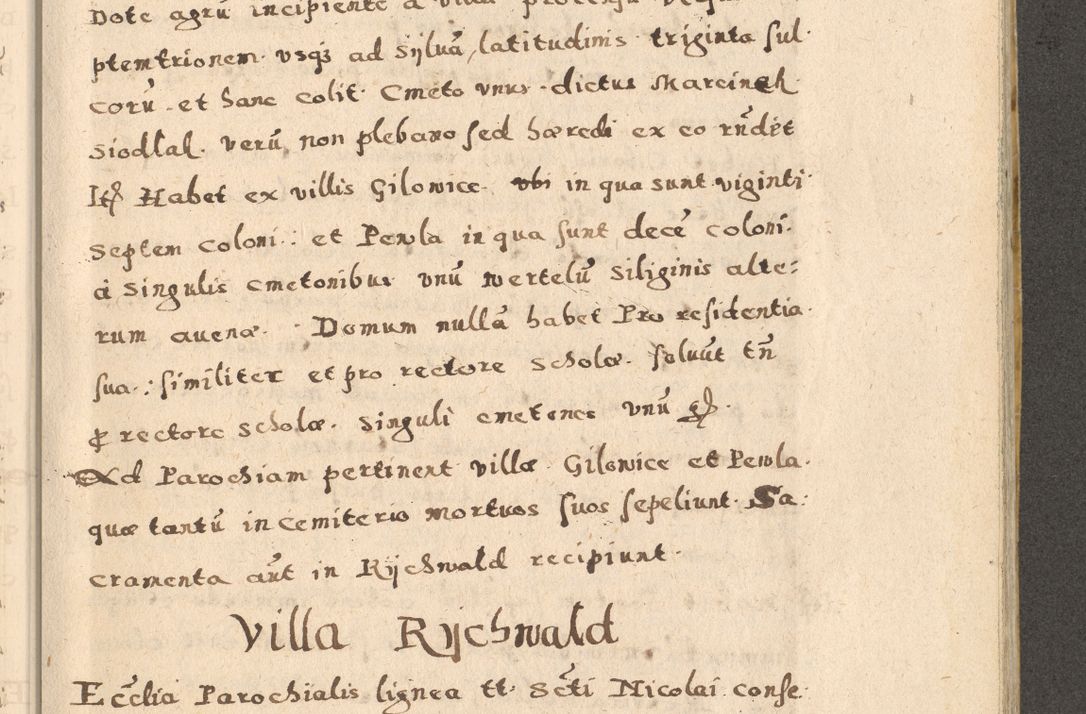 Dote agrũ incipiente a villa
ptemtrionem. vsqʒ ad sijluã, latitudinis triginta sul.
corũ. et hanc colit. Cmeto vnus. dictus Marcinek.
Siodlak. verũ, non plebano sed hæredi ex eo rñdet
Itẽ Habet ex villis Gilowice in qua sunt viginti.
septem coloni: et Pewla in qua sunt decẽ coloni.
à singulis cmetonibus vnũ wertelũ siliginis alte:
rum auenæ. Domum nullã habet Pro residentia.
sua.: similiter et pro rectore scholæ. soluũt tñ
ꝑ rectore scholæ. singuli cmetones vnũ gͬ.
Ad Parochiam pertinent villæ Gilowice et Pewla.
quæ tantũ in cemiterio mortuos suos sepeliunt. Sa:
cramenta aũt in Rijchwald recipiunt.
Villa Rijchwald
Eccĩia Parochialis lignea tt. Scti Nicolai conse.